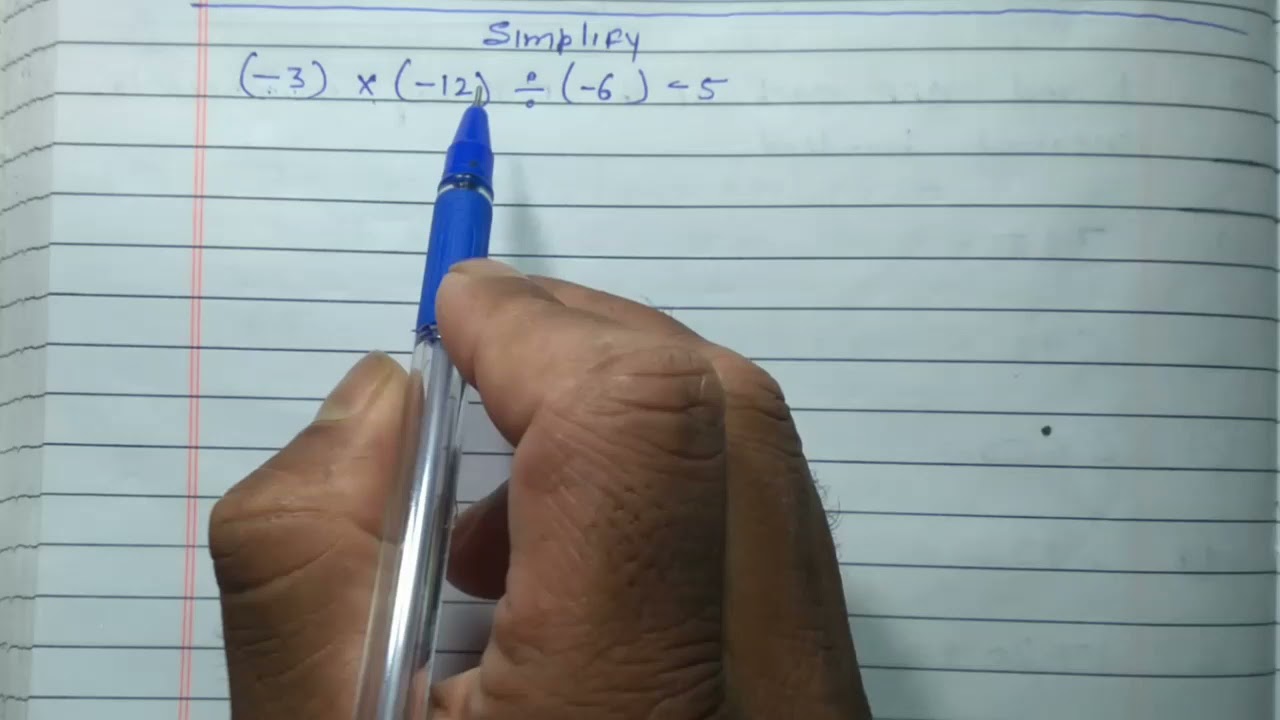 Simplify
(-3) × (-12) ÷ (-6) - 5